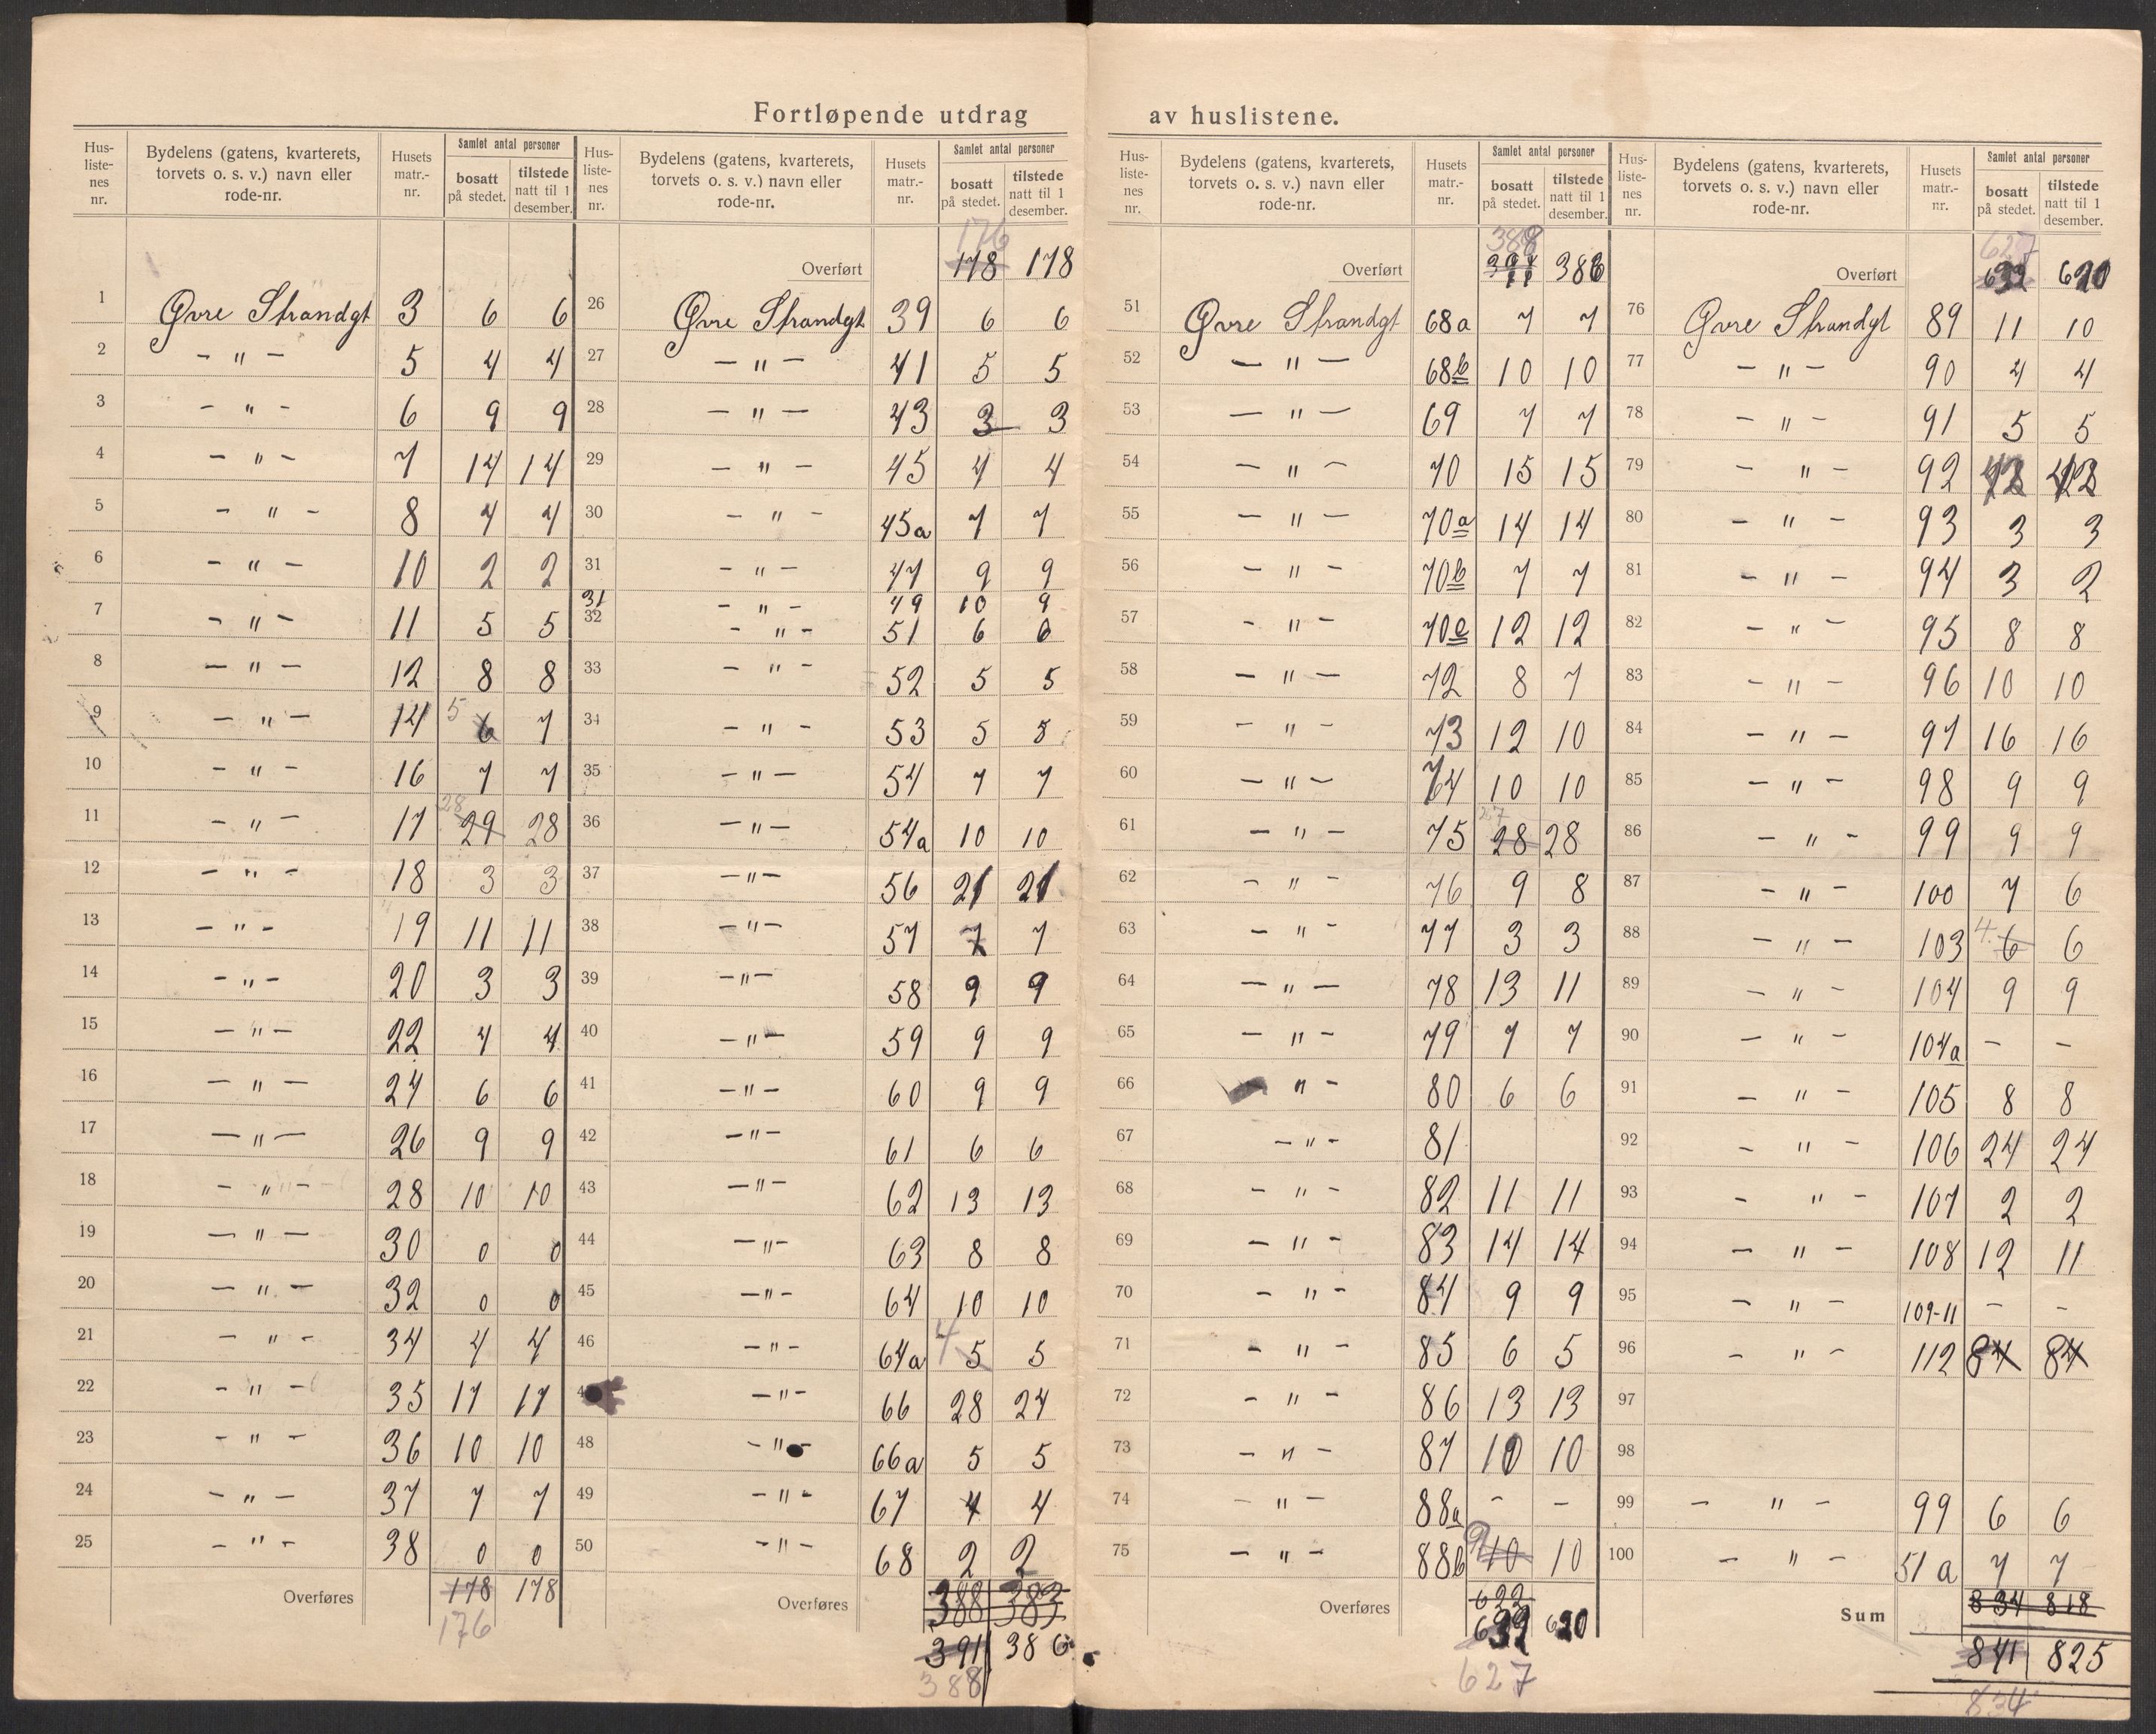 Fortløpende utdrag av huslistene.
Hus-listenes nr. | Bydelens (gatens, kvarterets, torvets o. s. v.) navn eller rode-nr. | Husets matr.-nr. | Samlet antal personer bosatt på stedet. | tilstede natt til 1 desember.
1 Øvre Strandgt 3 6 6
2 — " — 5 4 4
3 — " — 6 9 9
4 — " — 7 14 14
5 — " — 8 4 4
6 — " — 10 2 2
7 — " — 11 5 5
8 — " — 12 8 8
9 — " — 14 5 6 7
10 — " — 16 7 7
11 — " — 17 28 29 28
12 — " — 18 3 3
13 — " — 19 11 11
14 — " — 20 3 3
15 — " — 22 4 4
16 — " — 24 6 6
17 — " — 26 9 9
18 — " — 28 10 10
19 — " — 30 0 0
20 — " — 32 0 0
21 — " — 34 4 4
22 — " — 35 17 17
23 — " — 36 10 10
24 — " — 37 7 7
25 — " — 38 0 0
Overføres 178 178
176
Hus-listenes nr. | Bydelens (gatens, kvarterets, torvets o. s. v.) navn eller rode-nr. | Husets matr.-nr. | Samlet antal personer bosatt på stedet. | tilstede natt til 1 desember.
176
Overført 178 178
26 Øvre Strandgt. 39 6 6
27 — " — 41 5 5
28 — " — 43 3 3
29 — " — 45 4 4
30 — " — 45a 7 7
31 — " — 47 9 9
31 — " — 49 10 9
32 — " — 51 6 6
33 — " — 52 5 5
34 — " — 53 5 5
35 — " — 54 7 7
36 — " — 54a 10 10
37 — " — 56 21 21
38 — " — 57 7 7
39 — " — 58 9 9
40 — " — 59 9 9
41 — " — 60 9 9
42 — " — 61 6 6
43 — " — 62 13 13
44 — " — 63 8 8
45 — " — 64 10 10
46 — " — 64a 4 5 5
4 — " — 66 28 24
48 — " — 66a 5 5
49 — " — 67 4 4
50 — " — 68 2 2
Overføres 388 383
391 386
388
Hus-listenes nr. | Bydelens (gatens, kvarterets, torvets o. s. v.) navn eller rode-nr. | Husets matr.-nr. | Samlet antal personer bosatt på stedet. | tilstede natt til 1 desember.
388
Overført 391 386
51 Øvre Strandgt 68a 7 7
52 — " — 68b 10 10
53 — " — 69 7 7
54 — " — 70 15 15
55 — " — 70a 14 14
56 — " — 70b 7 7
57 — " — 70c 12 12
58 — " — 72 8 7
59 — " 73 12 10
60 — " — 74 10 10
61 — " — 75 27 28 28
62 — " — 76 9 8
63 — " — 77 3 3
64 — " — 78 13 11
65 — " — 79 7 7
66 — " — 80 6 6
67 — " — 81
68 — " — 82 11 11
69 — " — 83 14 14
70 — " — 84 9 9
71 — " — 85 6 5
72 — " — 86 13 13
73 — " — 87 10 10
74 — " — 88a — —
75 — " — 88b 9 10 10
Overføres 622
632 620
627
Hus-listenes nr. | Bydelens (gatens, kvarterets, torvets o. s. v.) navn eller rode-nr. | Husets matr.-nr. | Samlet antal personer bosatt på stedet. | tilstede natt til 1 desember.
627
Overført 632 620
76 Øvre Strandgt 89 11 10
77 — " — 90 4 4
78 — " — 91 5 5
79 — " — 92
80 — " — 93 3 3
81 — " — 94 3 2
82 — " — 95 8 8
83 — " — 96 10 10
84 — " — 97 16 16
85 — " — 98 9 9
86 — " — 99 9 9
87 — " — 100 7 6
88 — " — 103 4 6 6
89 — " — 104 9 9
90 — " — 104a — —
91 — " — 105 8 8
92 — " — 106 24 24
93 — " — 107 2 2
94 — " — 108 12 11
95 — " — 109-11 — —
96 — " — 112 84 84
97
98
99 — " — 99 6 6
100 — " — 51a 7 7
Sum 834 818
841 825
834